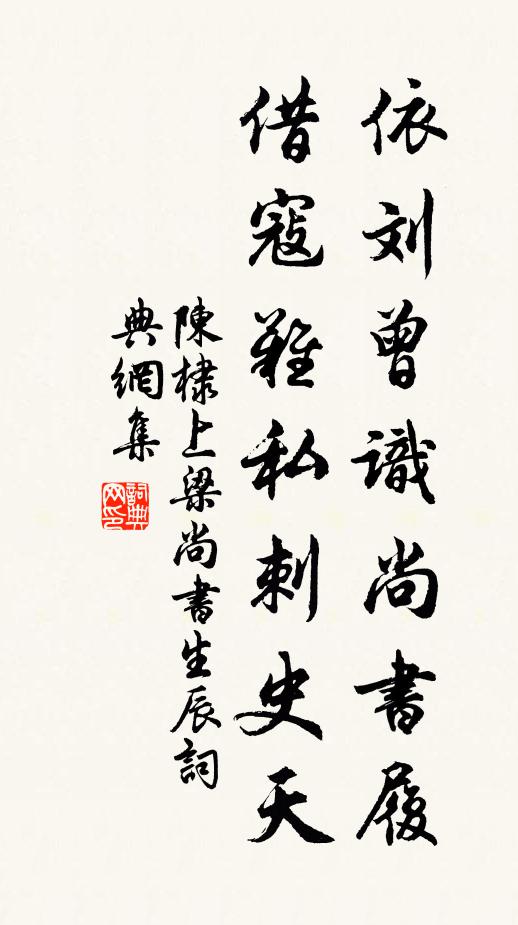 依刘曾識尚書履
借寇難私刺史天
陳棣上梁尚書生辰詞
典網集
詞典网印